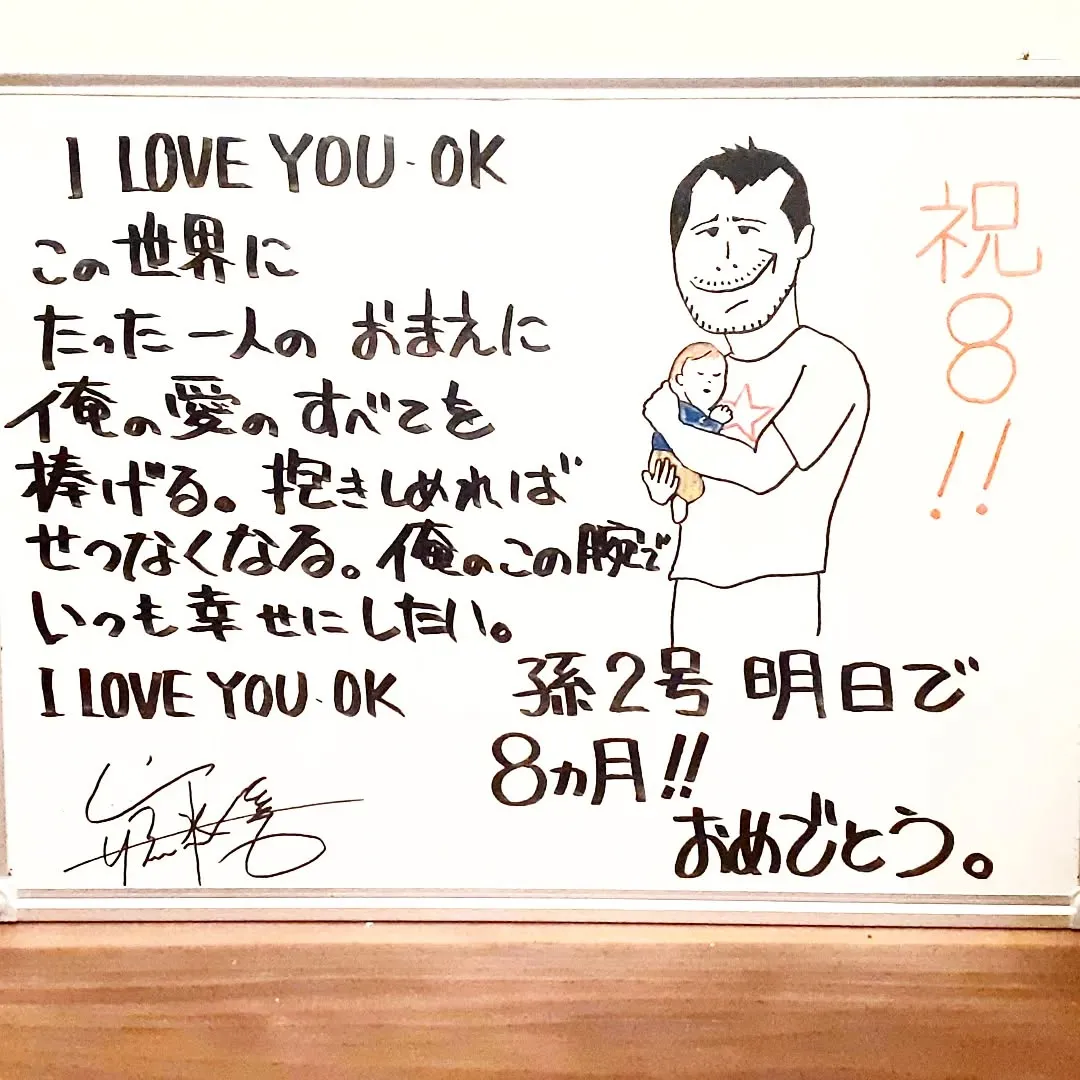 I LOVE YOU・OK
この世界に
たった一人の おまえに
俺の愛の すべてを
捧げる。抱きしめれば
せつなくなる。俺のこの腕で
いつも幸せにしたい。
I LOVE YOU・OK
祝
8
!!
孫2号 明日で
8ヵ月!!
おめでとう。